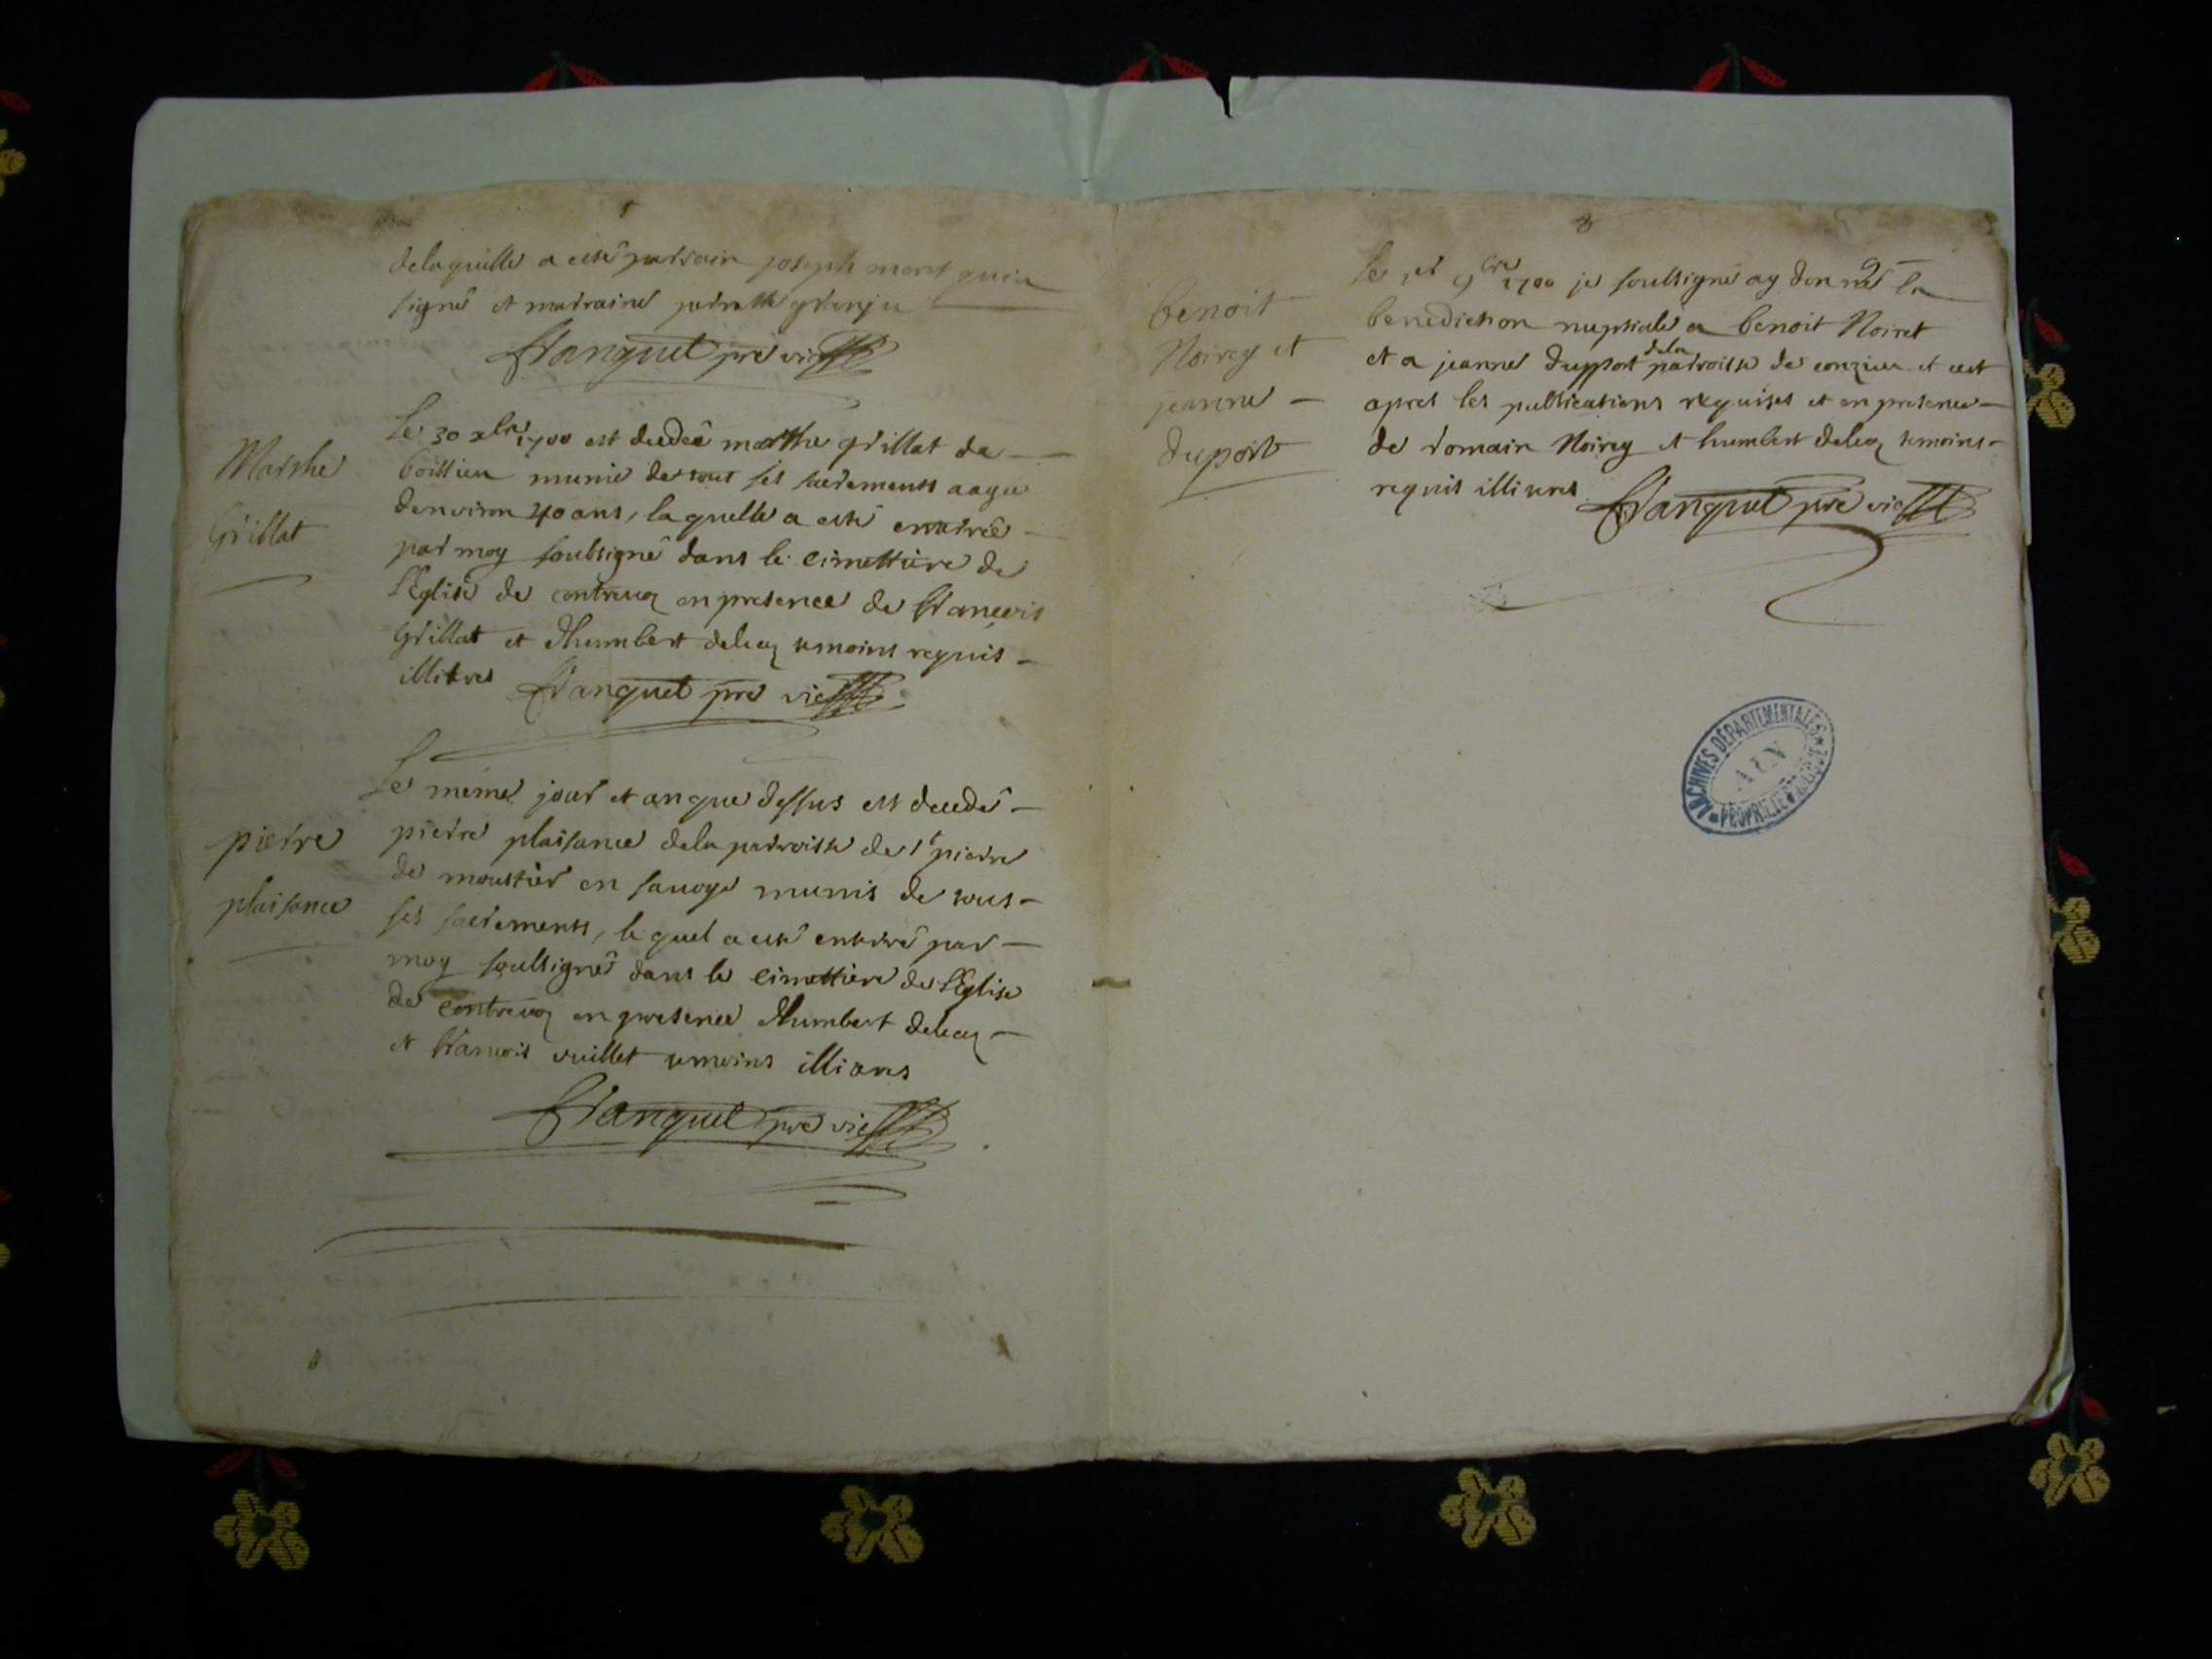 delaquelle a esté parrain joseph moret qui a
signé et maraine pernette granju
ftanquet pre vic
Marthe
Grillat
Le 30 xbre 1700 est decedeé marthe grillat de
boissieu munie de tout ses sacrements aageé
denviron 40 ans, laquelle a esté enterreé
par moy soubsigné dans le cimettiere de
l'Eglise de contrevoz en presence de francois
Grillat et dhumbert deleaz temoins requis
illitres ftanquet pre vic
pierre
plaisance
Le méme jour et an que dessus est decedé
pierre plaisance dela parroisse de st pierre
de moustier en savoye munis de tous
ses sacrements, lequel a esté enterré par
moy soubsigné dans le cimettiere de l'Eglise
de contrevoz en presence dhumbert deleaz
et francois vuillet temoins illitres
ftanquet pre vic
benoit
Noirey et
jeanne
duport
le 1er 9bre 1700 je soubsigné ay donné la
benediction nuptiale a benoit Noiret
et a jeanne dupport dela parroisse de conzieu et cest
apres les publications requises et en presence
de romain Noirey et humbert deleaz temoins
requis illitres ftanquet pre vic
ARCHIVES DÉPARTEMENTALES
AIN
PROPRIÉTÉ PUBLIQUE